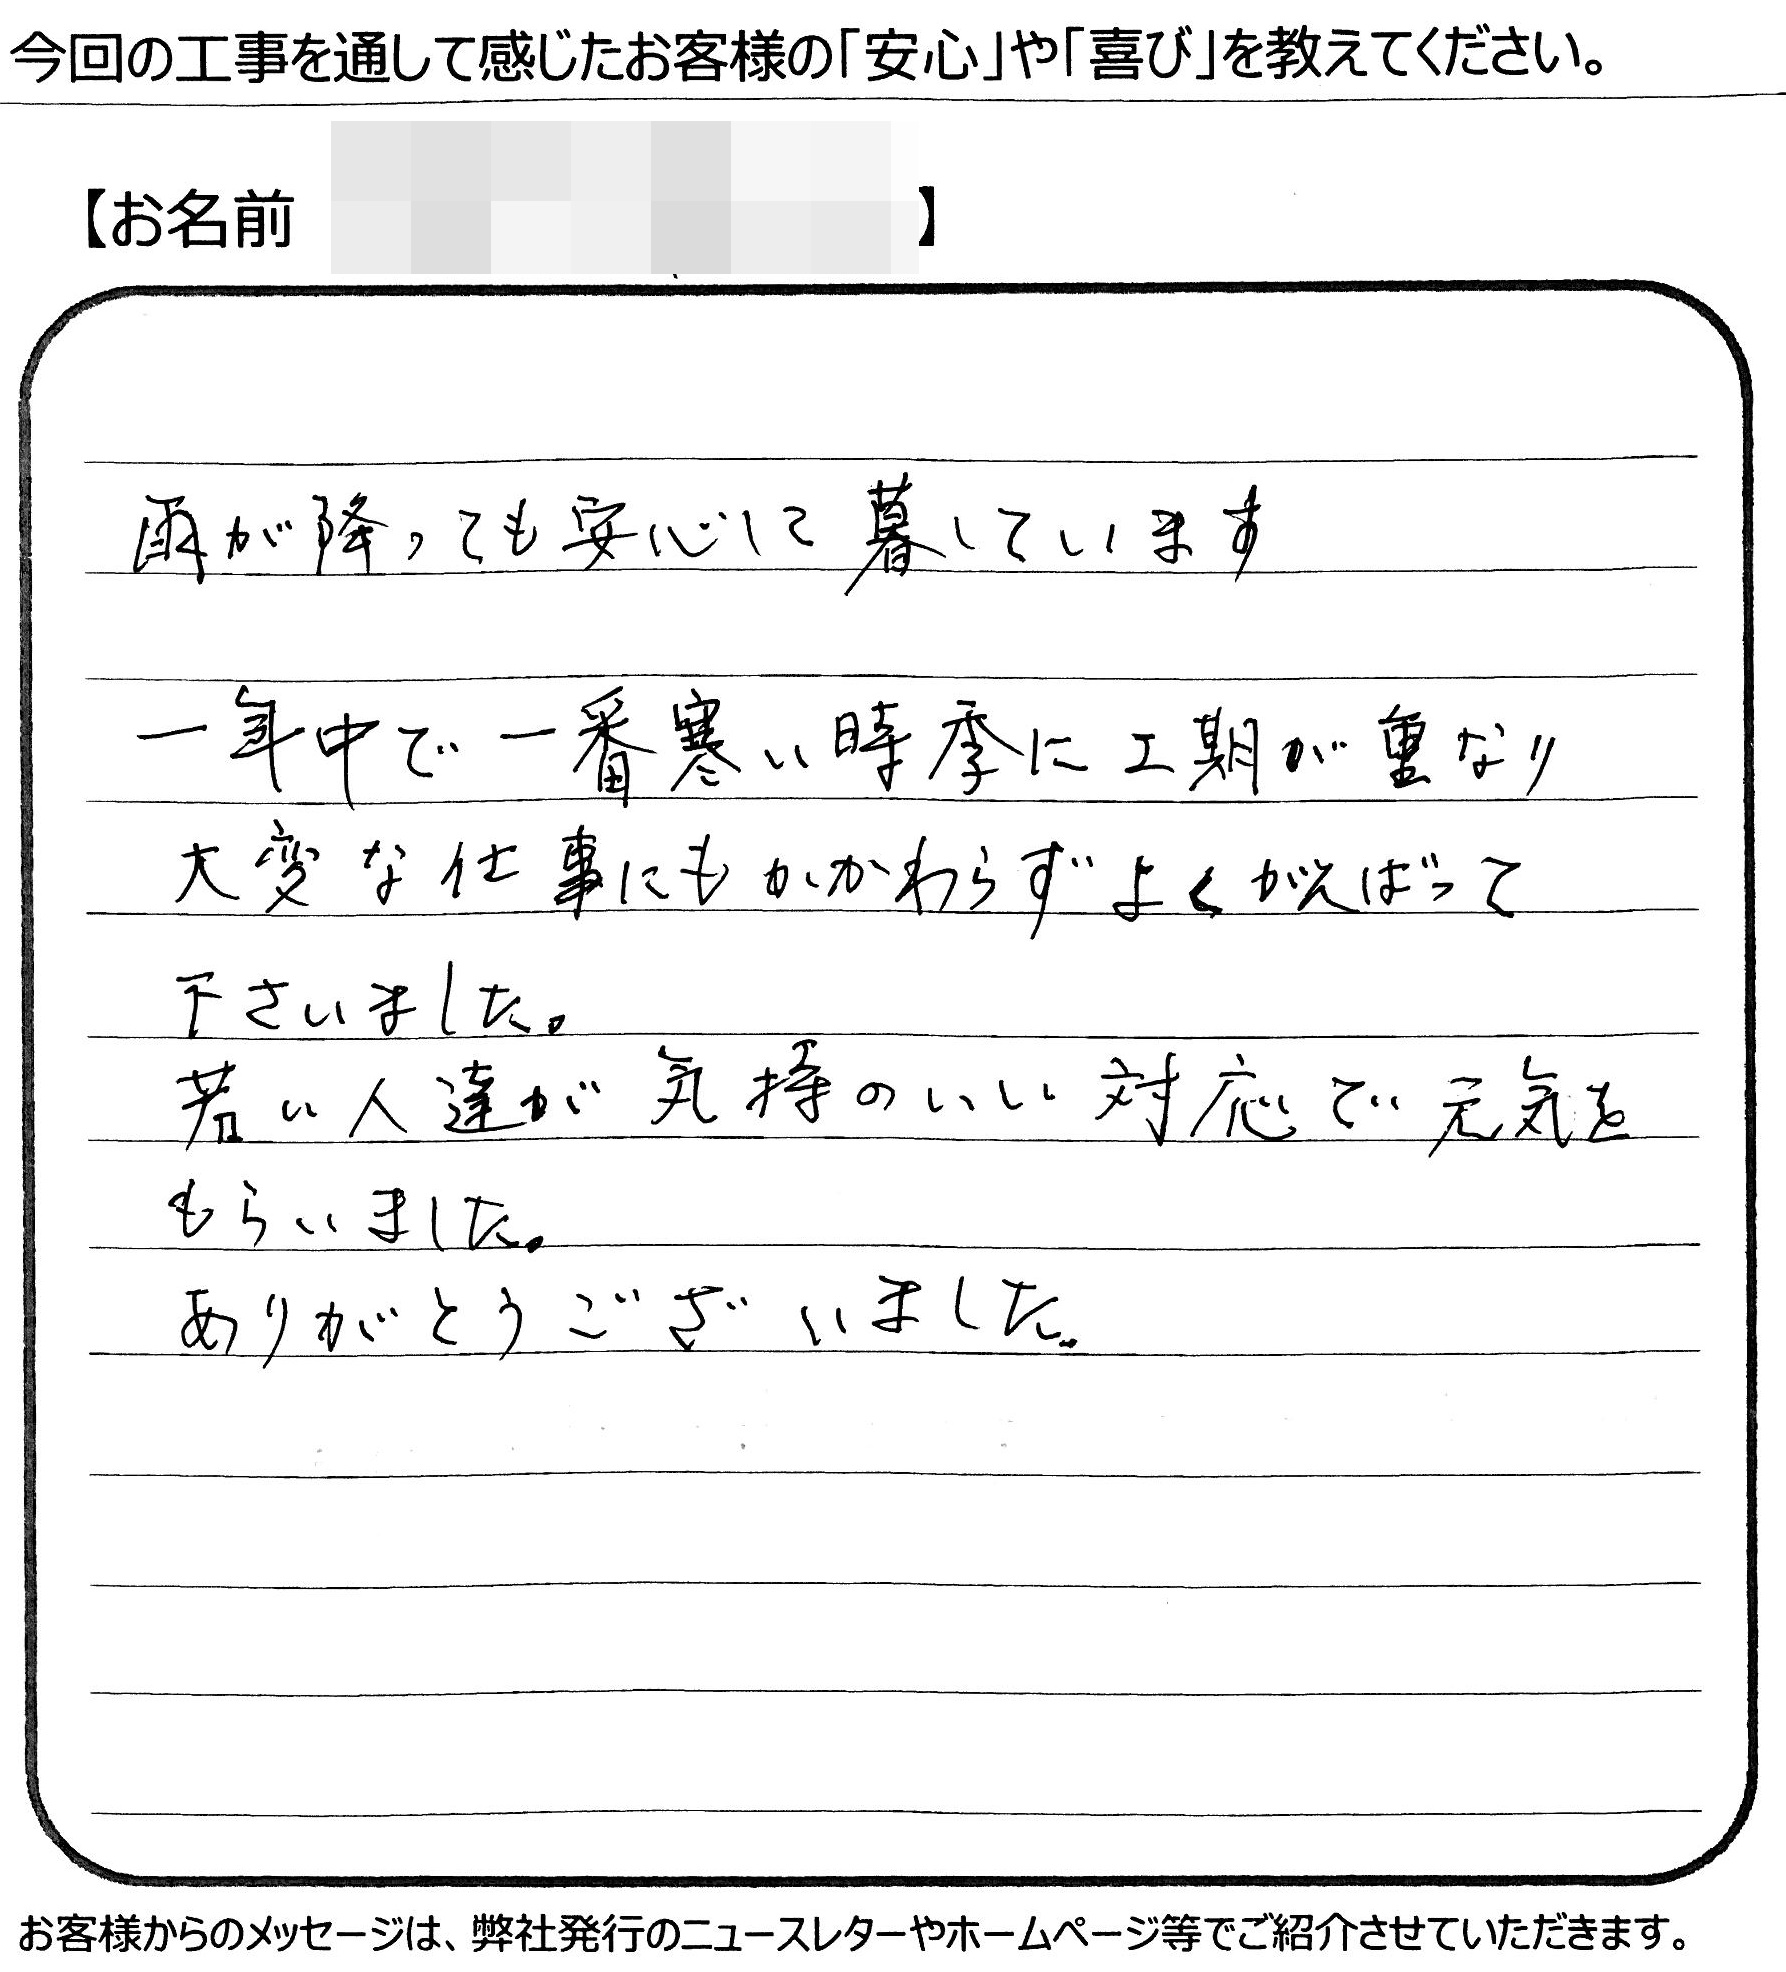 今回の工事を通して感じたお客様の「安心」や「喜び」を教えてください。
【お名前 】
雨が降っても安心して暮しています
一年中で一番寒い時季に工期が重なり
大変な仕事にもかかわらずよくがんばって
下さいました。
若い人達が気持のいい対応で元気を
もらいました。
ありがとうございました。
お客様からのメッセージは、弊社発行のニュースレターやホームページ等でご紹介させていただきます。